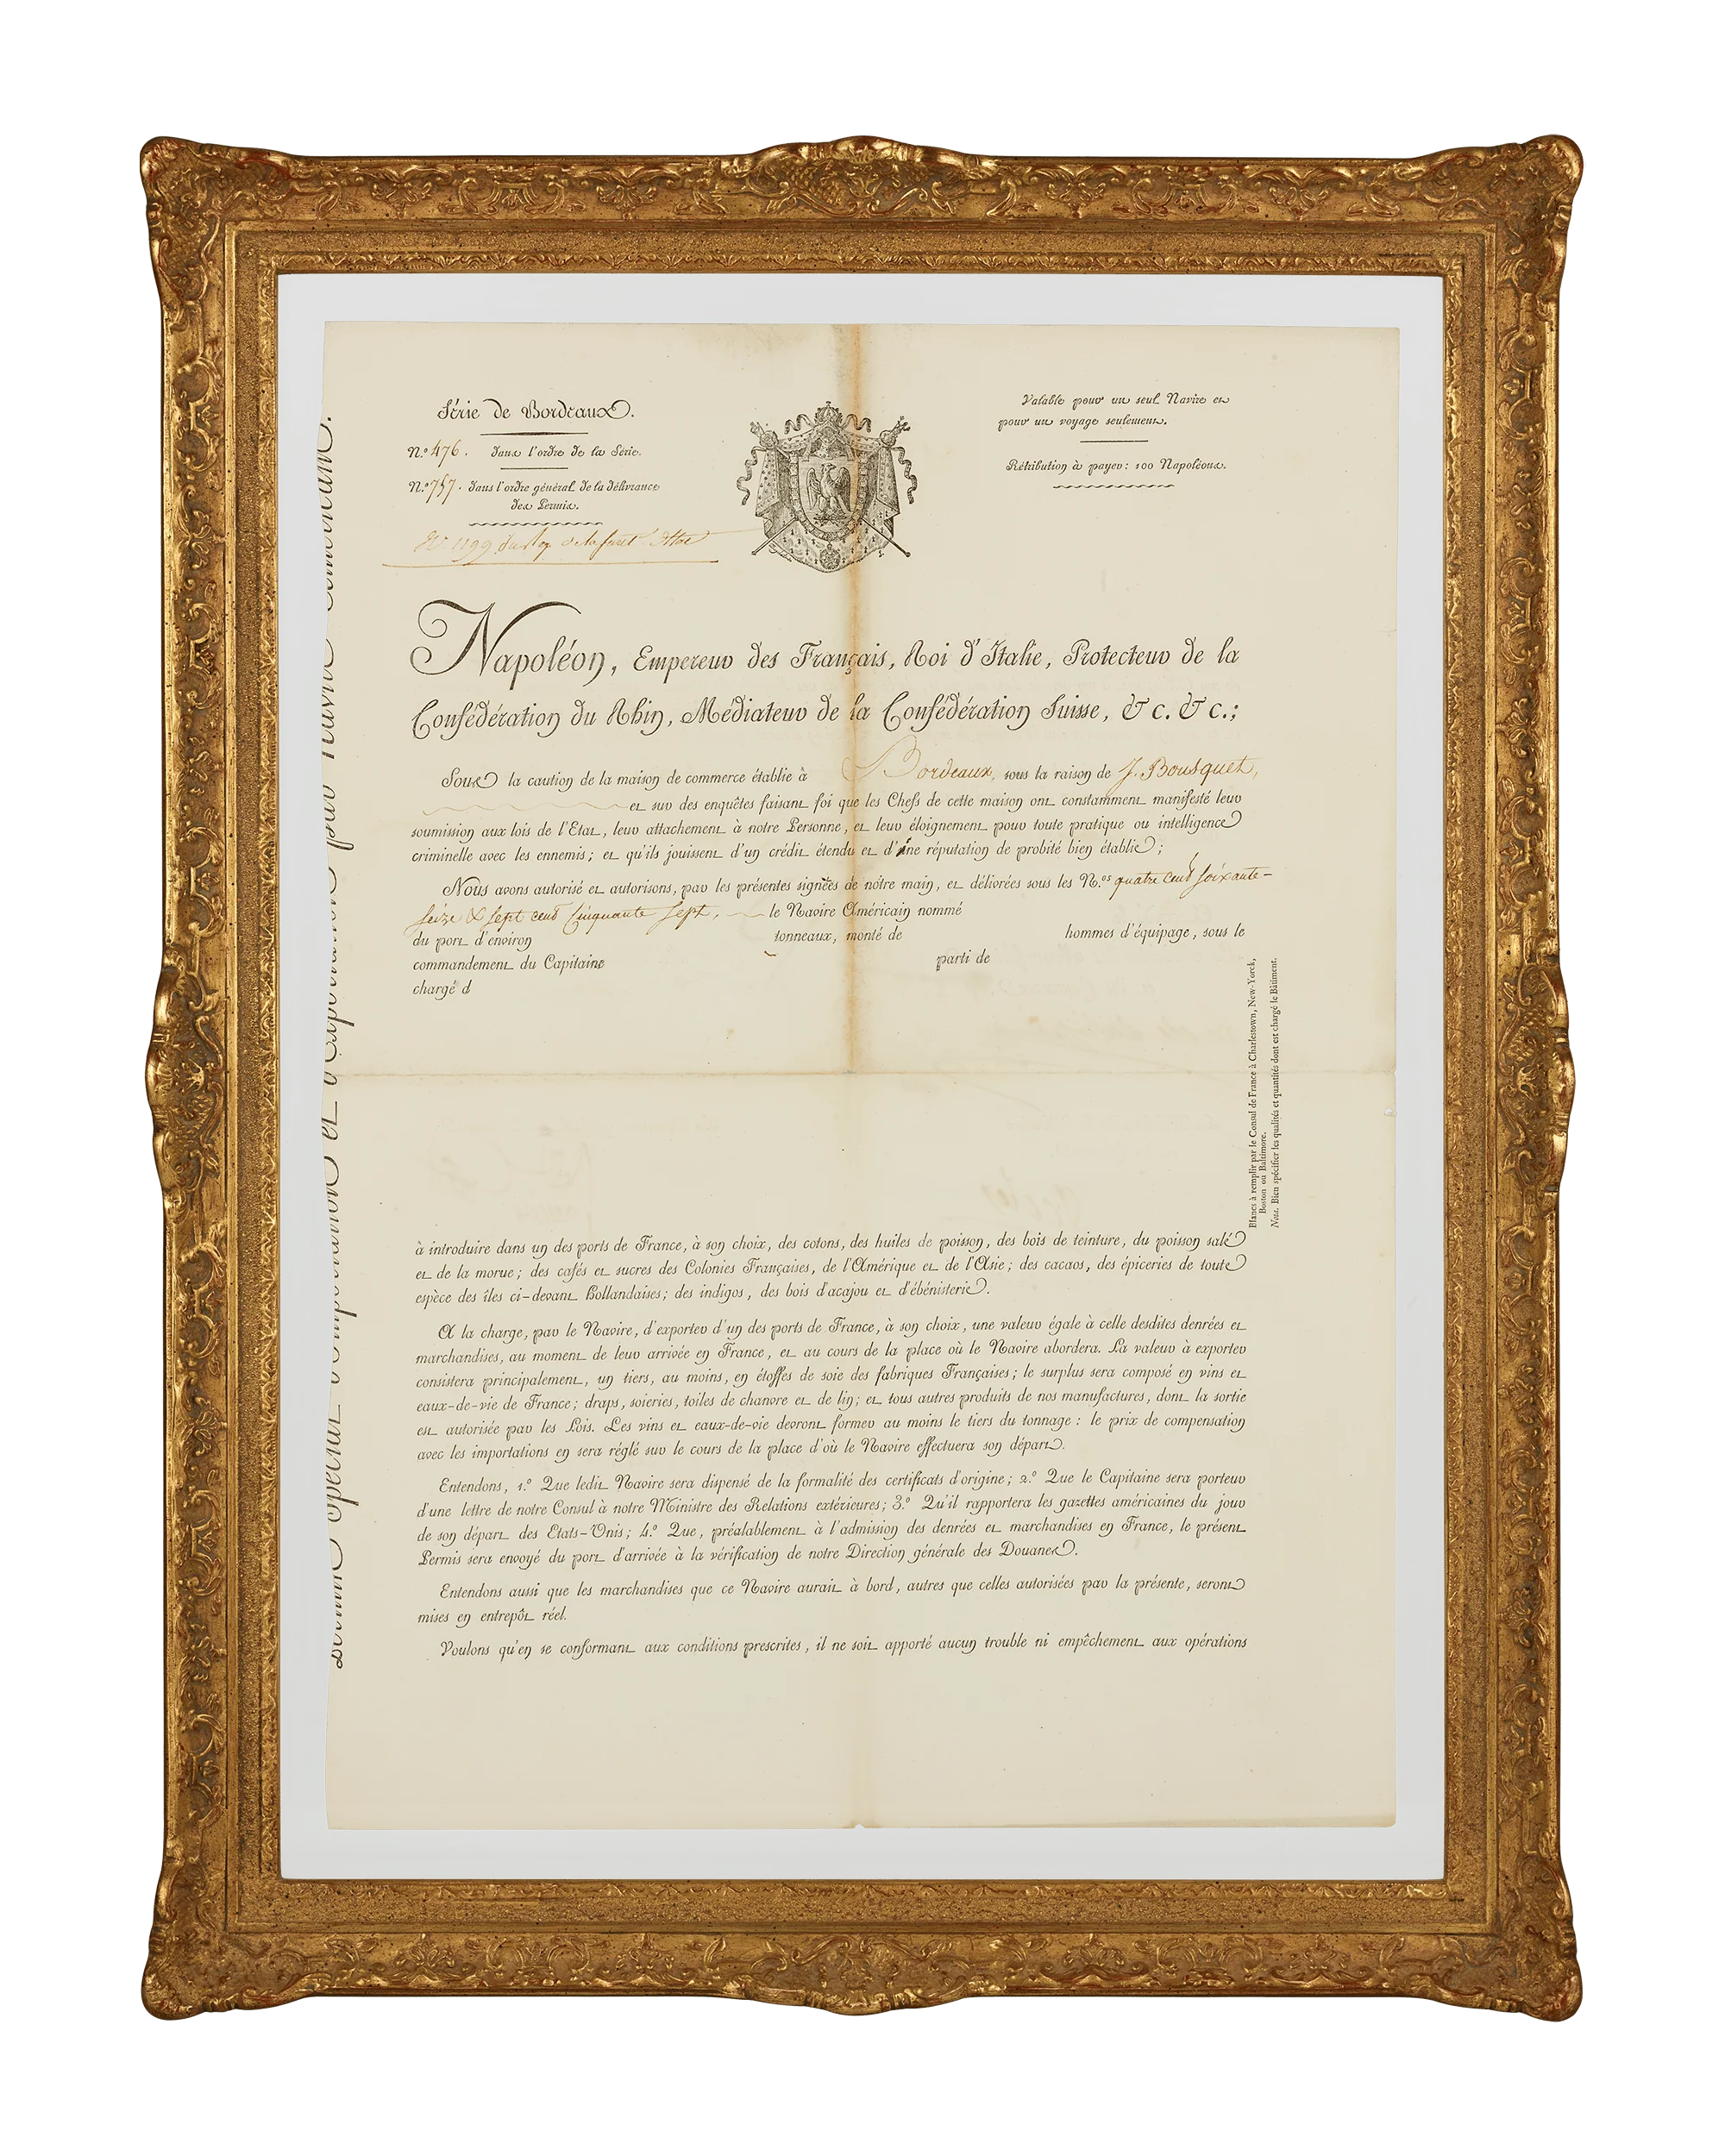 Série de Bordeaux.
N.º 476. dans l'ordre de la Série.
N.º 757. dans l'ordre général de la délivrance
des Permis.
Nº 1199 du
Valable pour un seul Navire et
pour un voyage seulement.
Rétribution à payer: 100 Napoléons.
Napoléon, Empereur des Français, Roi d'Italie, Protecteur de la
Confédération du Rhin, Médiateur de la Confédération Suisse, & c. & c.;
Sous la caution de la maison de commerce établie à Bordeaux, sous la raison de J. Bousquet,
et sur des enquêtes faisant foi que les Chefs de cette maison ont constamment manifesté leur
soumission aux lois de l'Etat, leur attachement à notre Personne, et leur éloignement pour toute pratique ou intelligence
criminelle avec les ennemis; et qu'ils jouissent d'un crédit étendu et d'une réputation de probité bien établie;
Nous avons autorisé et autorisons, par les présentes signées de notre main, et délivrées sous les N.ºs quatre cent soixante-
seize & sept cent cinquante sept, le Navire Américain nommé
du port d'environ tonneaux, monté de hommes d'équipage, sous le
commandement du Capitaine parti de
chargé d
Blancs à remplir par le Consul de France à Charlestown, New-Yorck,
Boston ou Baltimore.
Nota. Bien spécifier les qualités et quantités dont est chargé le Bâtiment.
à introduire dans un des ports de France, à son choix, des cotons, des huiles de poisson, des bois de teinture, du poisson salé
et de la morue; des cafés et sucres des Colonies Françaises, de l'Amérique et de l'Asie; des cacaos, des épiceries de toute
espèce des îles ci-devant Hollandaises; des indigos, des bois d'acajou et d'ébénisterie.
A la charge, par le Navire, d'exporter d'un des ports de France, à son choix, une valeur égale à celle desdites denrées et
marchandises, au moment de leur arrivée en France, et au cours de la place où le Navire abordera. La valeur à exporter
consistera principalement, un tiers, au moins, en étoffes de soie des fabriques Françaises; le surplus sera composé en vins et
eaux-de-vie de France; draps, soieries, toiles de chanvre et de lin; et tous autres produits de nos manufactures, dont la sortie
est autorisée par les Lois. Les vins et eaux-de-vie devront former au moins le tiers du tonnage: le prix de compensation
avec les importations en sera réglé sur le cours de la place d'où le Navire effectuera son départ.
Entendons, 1.º Que ledit Navire sera dispensé de la formalité des certificats d'origine; 2.º Que le Capitaine sera porteur
d'une lettre de notre Consul à notre Ministre des Relations extérieures; 3.º Qu'il rapportera les gazettes américaines du jour
de son départ des Etats-Unis; 4.º Que, préalablement à l'admission des denrées et marchandises en France, le présent
Permis sera envoyé du port d'arrivée à la vérification de notre Direction générale des Douanes.
Entendons aussi que les marchandises que ce Navire aurait à bord, autres que celles autorisées par la présente, seront
mises en entrepôt réel.
Voulons qu'en se conformant aux conditions prescrites, il ne soit apporté aucun trouble ni empêchement aux opérations